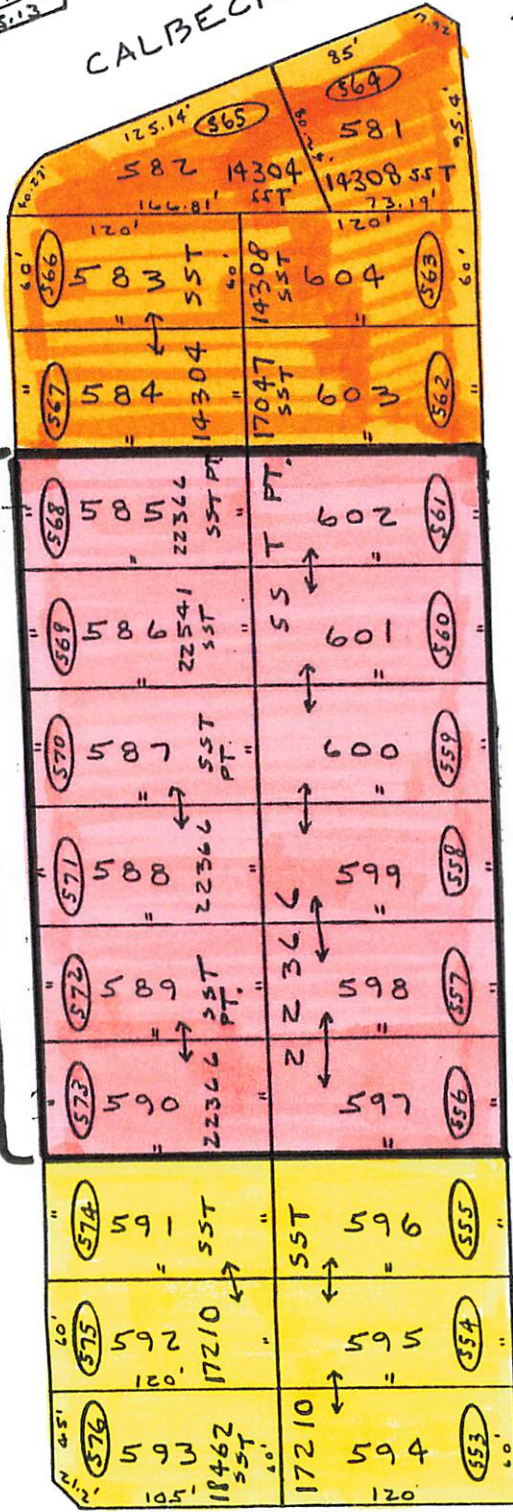 5.13
CALBECK
17.92'
85'
564
125.14'
565
581
80.24'
95.4'
582
14304
SST
14308 SST
40.27'
166.81'
73.19'
120'
120'
60'
566
583
SST
60'
14308
SST
604
563
60'
"
"
"
567
584
14304
"
17047
SST
603
562
"
"
"
"
568
585
22366
SST PT.
"
SST PT.
602
561
"
"
"
"
569
586
22541
SST
"
601
560
"
"
"
"
570
587
SST
PT.
"
600
559
"
"
"
"
571
588
22366
"
22366
599
558
"
"
"
"
572
589
SST
PT.
"
598
557
"
"
"
"
573
590
22366
"
597
556
"
"
"
"
574
591
SST
"
SST
596
555
"
"
"
60'
575
592
17210
"
595
554
"
120'
"
45'
576
593
18462
SST
60'
17210
594
553
60'
21.21'
105'
120